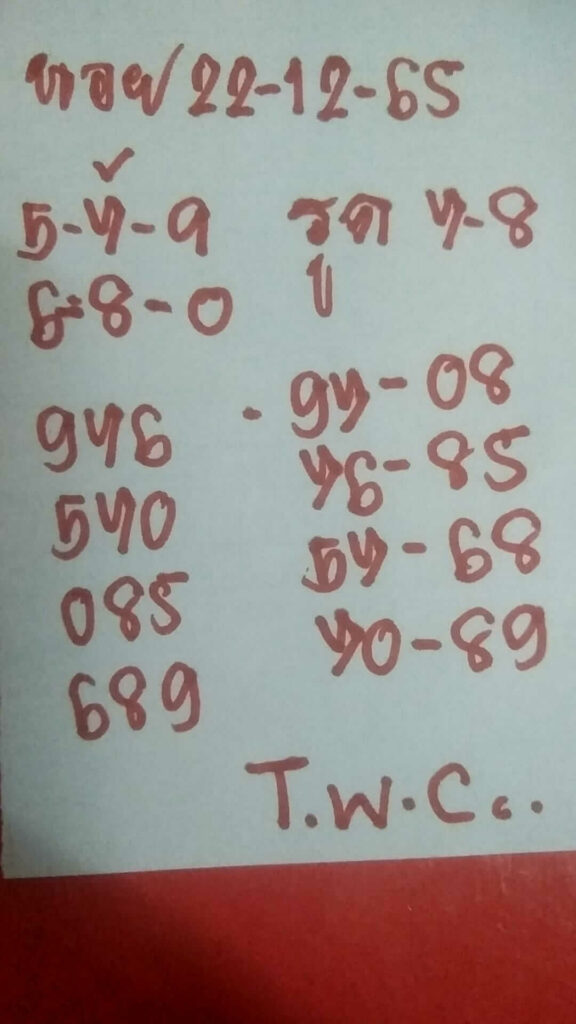 หอย 22-12-65
✓
5-7-9 รูด 7-8
6-8-0 บ
976 - 97-08
570 76-85
085 57-68
689 70-89
T.W.C...